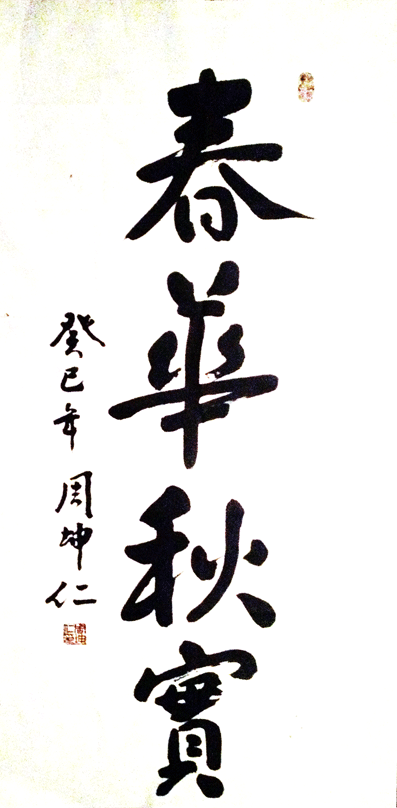 春華秋實
癸巳年 周坤仁